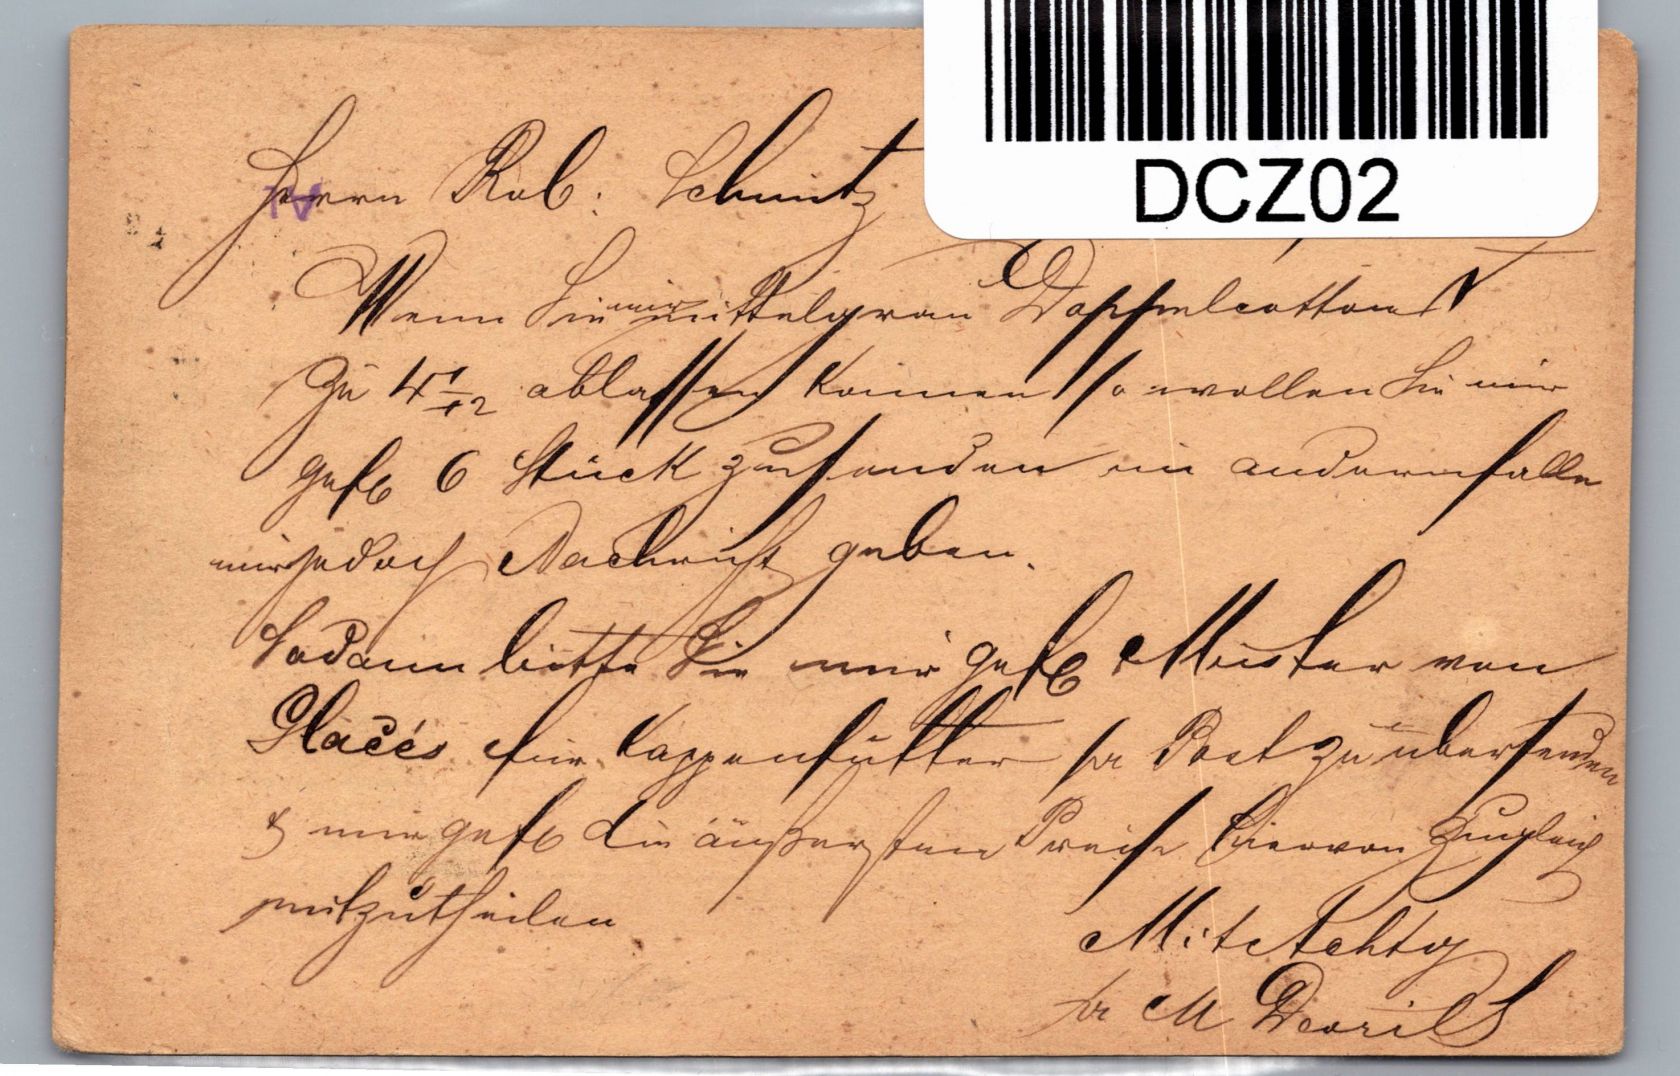 DCZ02
Herrn Rob: Schmitz
Wenn Sie mir mittelgrau Doppelcottons
zu 4 1/12 ablassen können so wollen Sie mir
gefl 6 Stück zusenden im andernfalle
mir jedoch Nachricht geben.
Sodann bitte Sie mir gefl Muster von
Glacés für Kappenfutter pr Post zu übersenden
& mir gefl die äußersten Preise hiervon zugleich
mitzutheilen
Mit Achtg
pr M